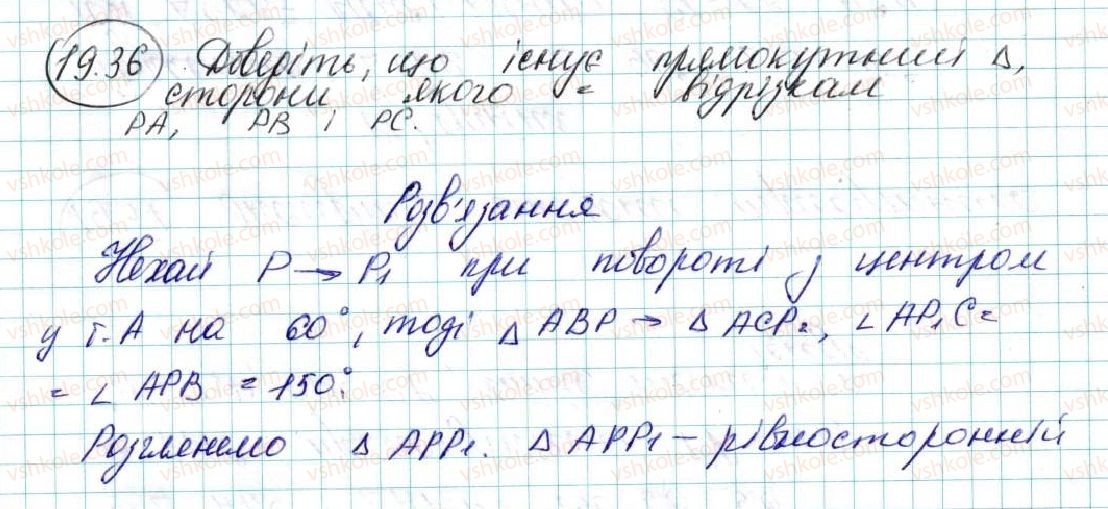 19.36 Доведіть, що існує прямокутний Δ,
сторони якого = відрізкам
PA, PB і PC.
Розв'язання
Нехай P → P₁ при повороті з центром
у т. A на 60°, тоді Δ ABP → Δ ACP₂, ∠ AP₁C =
= ∠ APB = 150°.
Розглянемо Δ APP₁. Δ APP₁ – рівносторонній